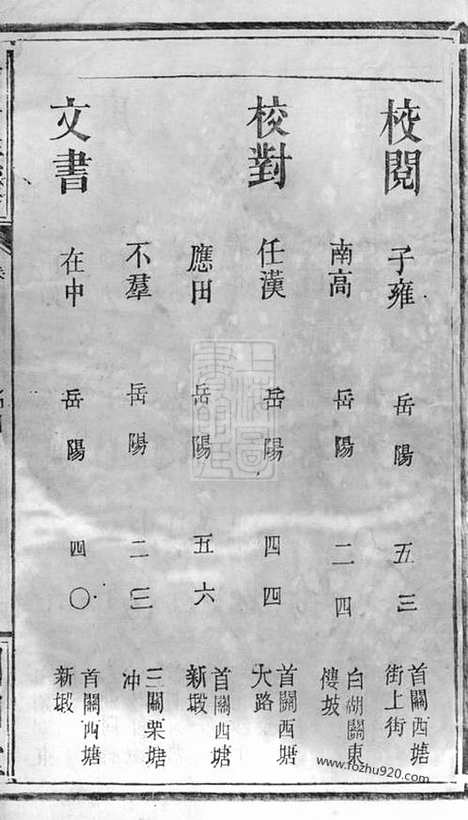 校閱 子雍 岳陽 五三 首關西塘街上街
南高 岳陽 二四 白湖關東僂坡
校對 任漢 岳陽 四四 首關西塘大路
應田 岳陽 五六 首關西塘新塅
不羣 岳陽 二三 三關栗塘冲
文書 在中 岳陽 四〇 首關西塘新塅
www.fozhu920.com